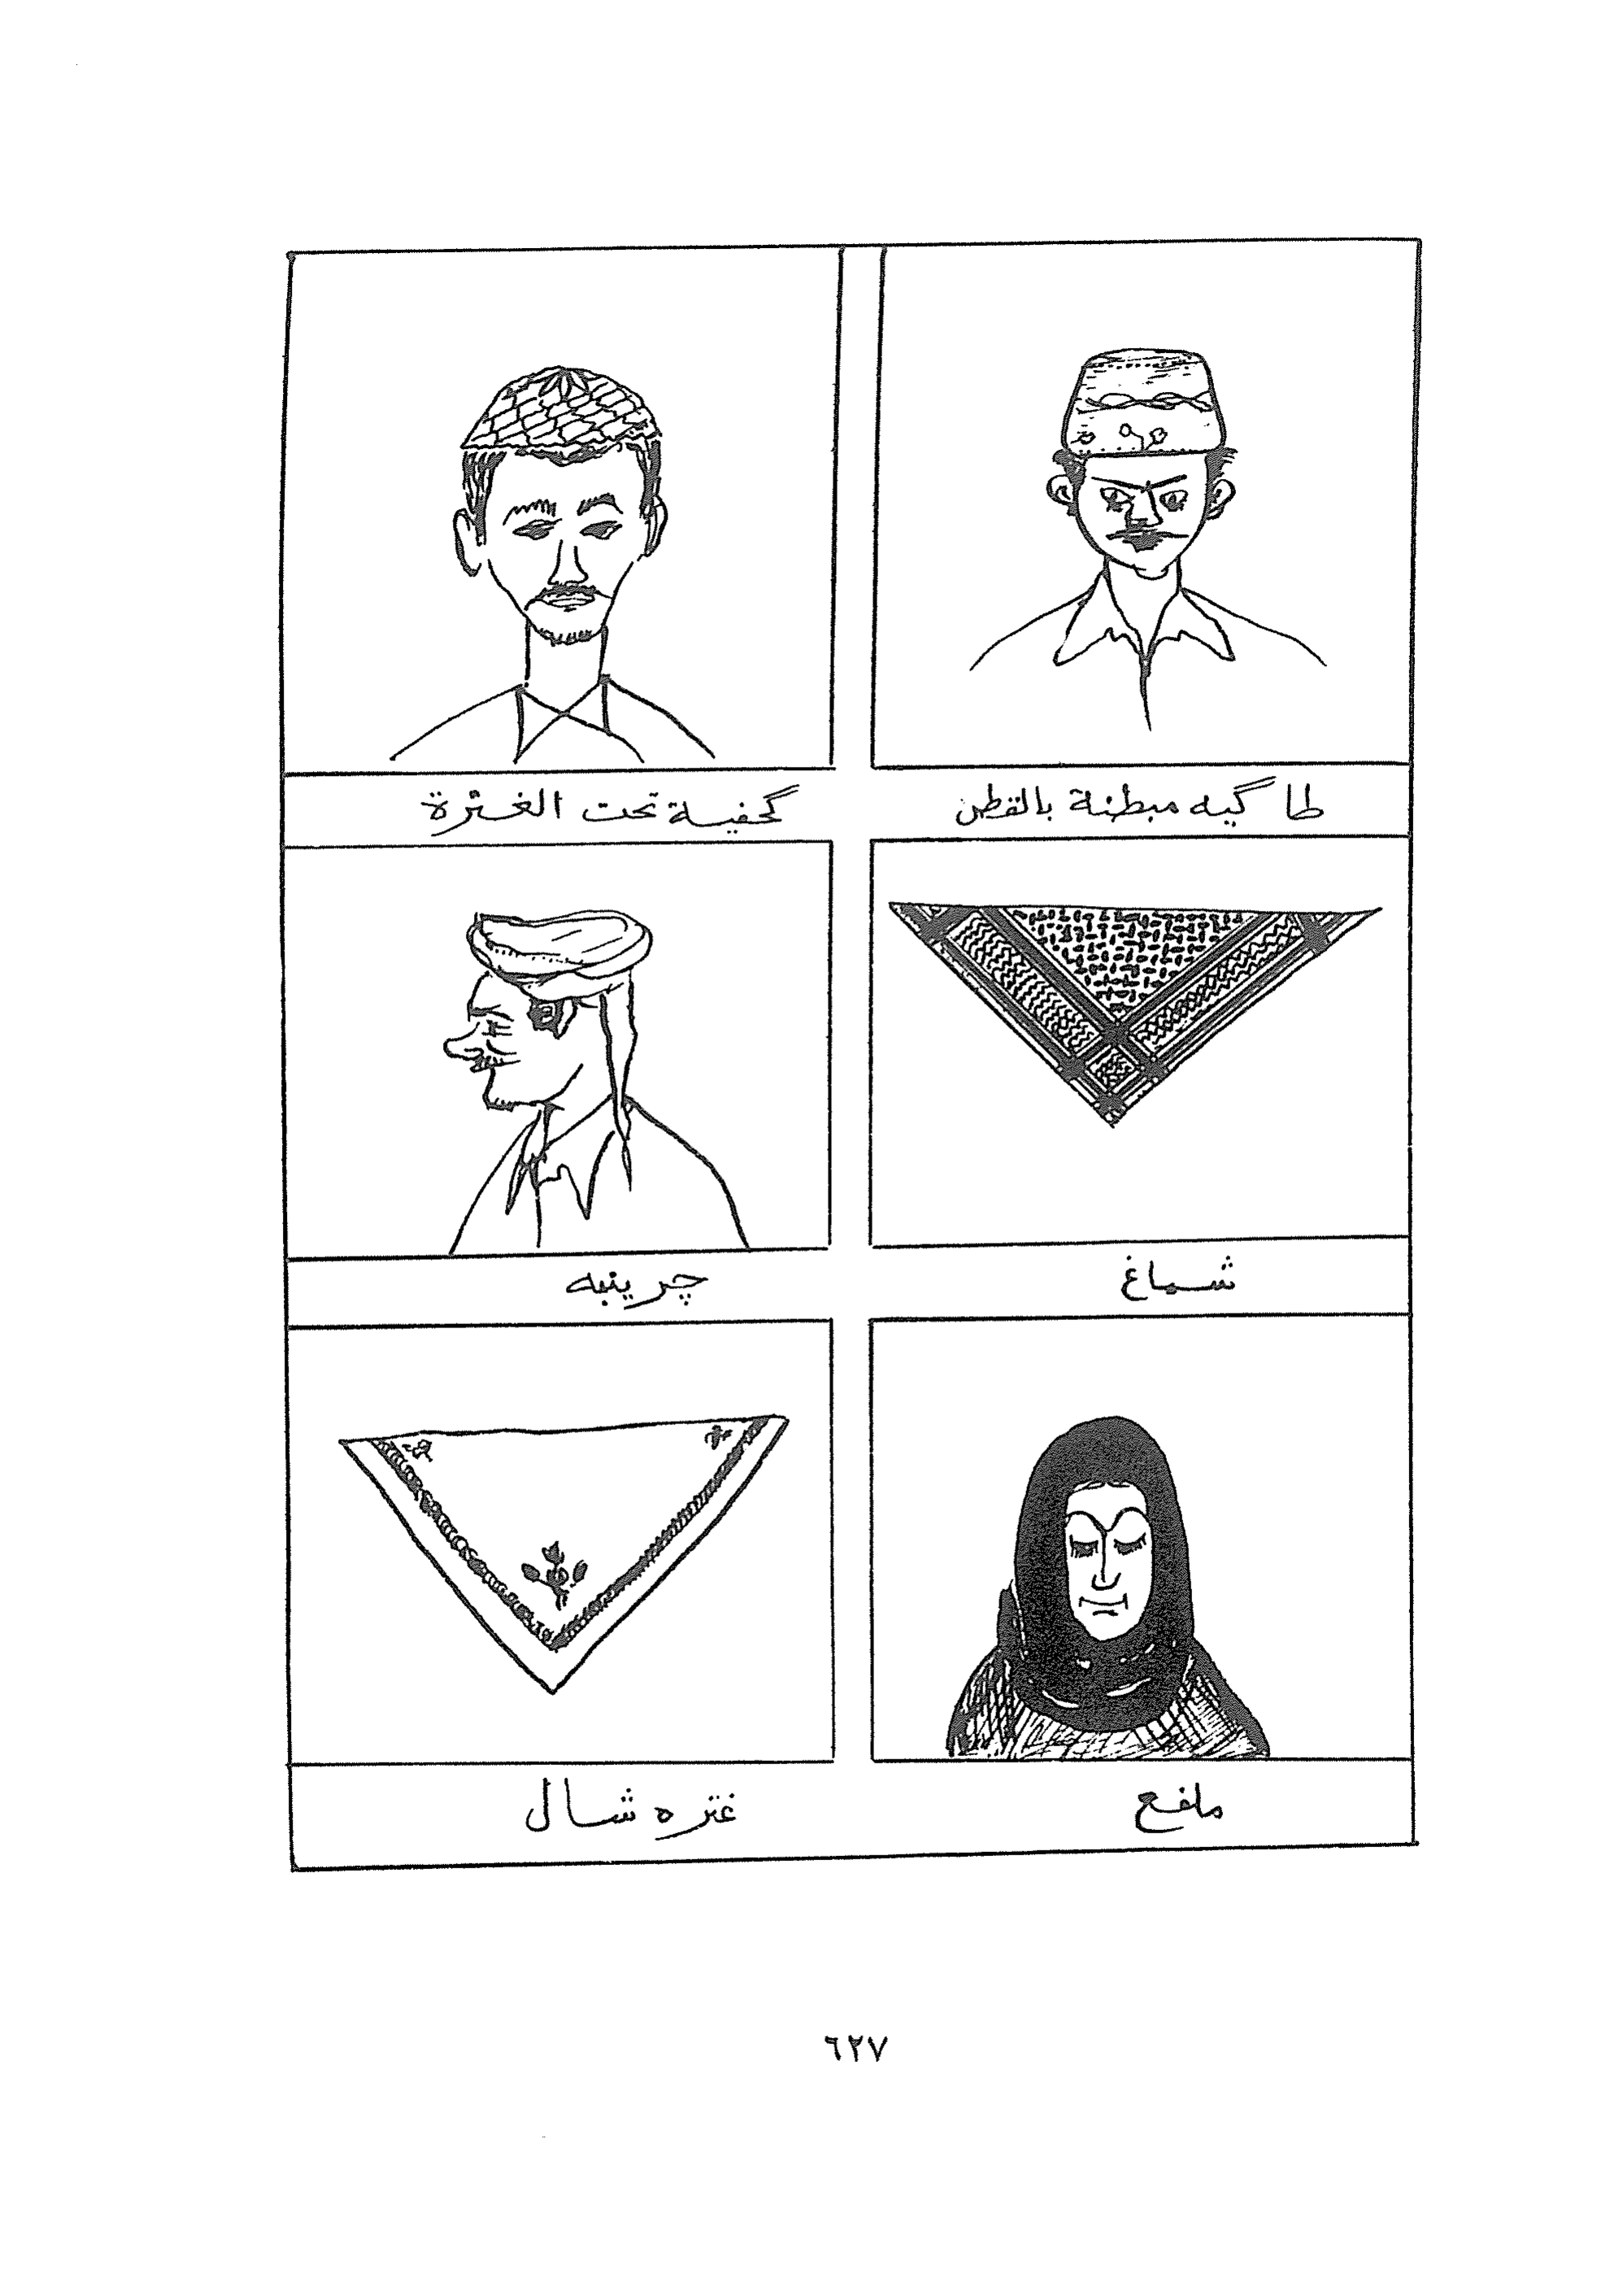 طاگيه مبطنة بالقطن
گحفية تحت الغترة
شماغ
چرينبه
ملفع
غتره شال
٦٢٧